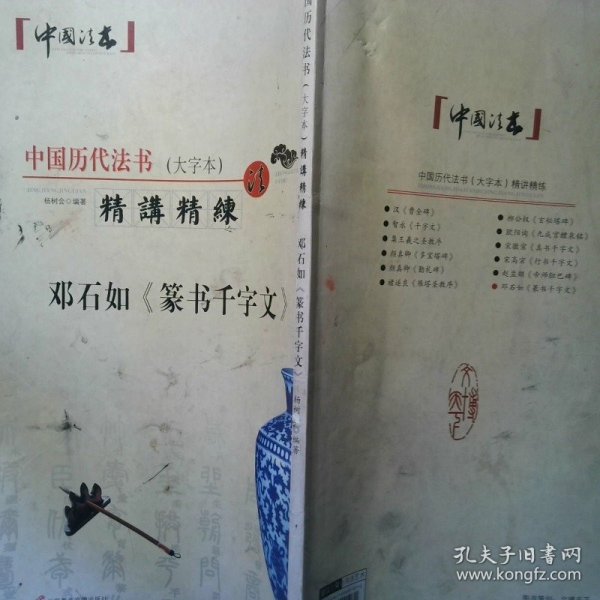 中国法书
中国历代法书(大字本)
法
杨树会 编著
精講精練
邓石如《篆书千字文》
国历代法书(大字本)精講精練 邓石如《篆书千字文》
中国法书
中国历代法书(大字本)精讲精练
●汉《曹全碑》
●智永《千字文》
●集王羲之圣教序
●颜真卿《多宝塔碑》
●颜真卿《勤礼碑》
●褚遂良《雁塔圣教序》
●柳公权《玄秘塔碑》
●欧阳询《九成宫醴泉铭》
●宋徽宗《真书千字文》
●宋高宗《行书千字文》
●赵孟頫《帝师胆巴碑》
●邓石如《篆书千字文》
孔夫子旧书网
www.kongfz.com